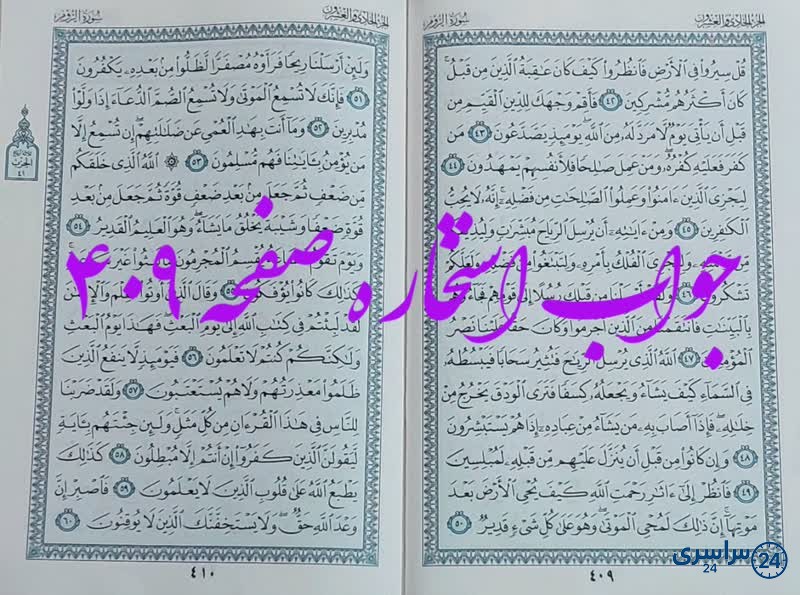 الجزء الحادي والعشرون
سورة الروم
قُلْ سِيرُوا۟ فِى ٱلْأَرْضِ فَٱنظُرُوا۟ كَيْفَ كَانَ عَٰقِبَةُ ٱلَّذِينَ مِن قَبْلُ ۚ
كَانَ أَكْثَرُهُم مُّشْرِكِينَ ٤٢ فَأَقِمْ وَجْهَكَ لِلدِّينِ ٱلْقَيِّمِ مِن
قَبْلِ أَن يَأْتِىَ يَوْمٌ لَّا مَرَدَّ لَهُۥ مِنَ ٱللَّهِ ۖ يَوْمَئِذٍ يَصَّدَّعُونَ ٤٣ مَن
كَفَرَ فَعَلَيْهِ كُفْرُهُۥ ۖ وَمَنْ عَمِلَ صَٰلِحًا فَلِأَنفُسِهِمْ يَمْهَدُونَ ٤٤
لِيَجْزِىَ ٱلَّذِينَ ءَامَنُوا۟ وَعَمِلُوا۟ ٱلصَّٰلِحَٰتِ مِن فَضْلِهِۦٓ ۚ إِنَّهُۥ لَا يُحِبُّ
ٱلْكَٰفِرِينَ ٤٥ وَمِنْ ءَايَٰتِهِۦٓ أَن يُرْسِلَ ٱلرِّيَاحَ مُبَشِّرَٰتٍ وَلِيُذِيقَكُم
مِّن رَّحْمَتِهِۦ وَلِتَجْرِىَ ٱلْفُلْكُ بِأَمْرِهِۦ وَلِتَبْتَغُوا۟ مِن فَضْلِهِۦ وَلَعَلَّكُمْ
تَشْكُرُونَ ٤٦ وَلَقَدْ أَرْسَلْنَا مِن قَبْلِكَ رُسُلًا إِلَىٰ قَوْمِهِمْ فَجَآءُوهُم
بِٱلْبَيِّنَٰتِ فَٱنتَقَمْنَا مِنَ ٱلَّذِينَ أَجْرَمُوا۟ ۖ وَكَانَ حَقًّا عَلَيْنَا نَصْرُ
ٱلْمُؤْمِنِينَ ٤٧ ٱللَّهُ ٱلَّذِى يُرْسِلُ ٱلرِّيَٰحَ فَتُثِيرُ سَحَابًا فَيَبْسُطُهُۥ
فِى ٱلسَّمَآءِ كَيْفَ يَشَآءُ وَيَجْعَلُهُۥ كِسَفًا فَتَرَى ٱلْوَدْقَ يَخْرُجُ مِنْ
خِلَٰلِهِۦ ۖ فَإِذَآ أَصَابَ بِهِۦ مَن يَشَآءُ مِنْ عِبَادِهِۦٓ إِذَا هُمْ يَسْتَبْشِرُونَ
٤٨ وَإِن كَانُوا۟ مِن قَبْلِ أَن يُنَزَّلَ عَلَيْهِم مِّن قَبْلِهِۦ لَمُبْلِسِينَ
٤٩ فَٱنظُرْ إِلَىٰٓ ءَاثَٰرِ رَحْمَتِ ٱللَّهِ كَيْفَ يُحْىِ ٱلْأَرْضَ بَعْدَ
مَوْتِهَآ ۚ إِنَّ ذَٰلِكَ لَمُحْىِ ٱلْمَوْتَىٰ ۖ وَهُوَ عَلَىٰ كُلِّ شَىْءٍ قَدِيرٌ ٥٠
٤٠٩
الجزء الحادي والعشرون
سورة الروم
وَلَئِنْ أَرْسَلْنَا رِيحًا فَرَأَوْهُ مُصْفَرًّا لَّظَلُّوا۟ مِنۢ بَعْدِهِۦ يَكْفُرُونَ
٥١ فَإِنَّكَ لَا تُسْمِعُ ٱلْمَوْتَىٰ وَلَا تُسْمِعُ ٱلصُّمَّ ٱلدُّعَآءَ إِذَا وَلَّوْا۟
مُدْبِرِينَ ٥٢ وَمَآ أَنتَ بِهَٰدِ ٱلْعُمْىِ عَن ضَلَٰلَتِهِمْ ۖ إِن تُسْمِعُ إِلَّا
مَن يُؤْمِنُ بِـَٔايَٰتِنَا فَهُم مُّسْلِمُونَ ٥٣ ۞ ٱللَّهُ ٱلَّذِى خَلَقَكُم
مِّن ضَعْفٍ ثُمَّ جَعَلَ مِنۢ بَعْدِ ضَعْفٍ قُوَّةً ثُمَّ جَعَلَ مِنۢ بَعْدِ
قُوَّةٍ ضَعْفًا وَشَيْبَةً ۚ يَخْلُقُ مَا يَشَآءُ ۖ وَهُوَ ٱلْعَلِيمُ ٱلْقَدِيرُ ٥٤
وَيَوْمَ تَقُومُ ٱلسَّاعَةُ يُقْسِمُ ٱلْمُجْرِمُونَ مَا لَبِثُوا۟ غَيْرَ سَاعَةٍ ۚ
كَذَٰلِكَ كَانُوا۟ يُؤْفَكُونَ ٥٥ وَقَالَ ٱلَّذِينَ أُوتُوا۟ ٱلْعِلْمَ وَٱلْإِيمَٰنَ
لَقَدْ لَبِثْتُمْ فِى كِتَٰبِ ٱللَّهِ إِلَىٰ يَوْمِ ٱلْبَعْثِ ۖ فَهَٰذَا يَوْمُ ٱلْبَعْثِ
وَلَٰكِنَّكُمْ كُنتُمْ لَا تَعْلَمُونَ ٥٦ فَيَوْمَئِذٍ لَّا يَنفَعُ ٱلَّذِينَ
ظَلَمُوا۟ مَعْذِرَتُهُمْ وَلَا هُمْ يُسْتَعْتَبُونَ ٥٧ وَلَقَدْ ضَرَبْنَا
لِلنَّاسِ فِى هَٰذَا ٱلْقُرْءَانِ مِن كُلِّ مَثَلٍ ۚ وَلَئِن جِئْتَهُم بِـَٔايَةٍ
لَّيَقُولَنَّ ٱلَّذِينَ كَفَرُوٓا۟ إِنْ أَنتُمْ إِلَّا مُبْطِلُونَ ٥٨ كَذَٰلِكَ
يَطْبَعُ ٱللَّهُ عَلَىٰ قُلُوبِ ٱلَّذِينَ لَا يَعْلَمُونَ ٥٩ فَٱصْبِرْ إِنَّ
وَعْدَ ٱللَّهِ حَقٌّ ۖ وَلَا يَسْتَخِفَّنَّكَ ٱلَّذِينَ لَا يُوقِنُونَ ٦٠
٤١٠
الحزب
٤١
جواب استخاره صفحه ۴۰۹
سراسری
24
24